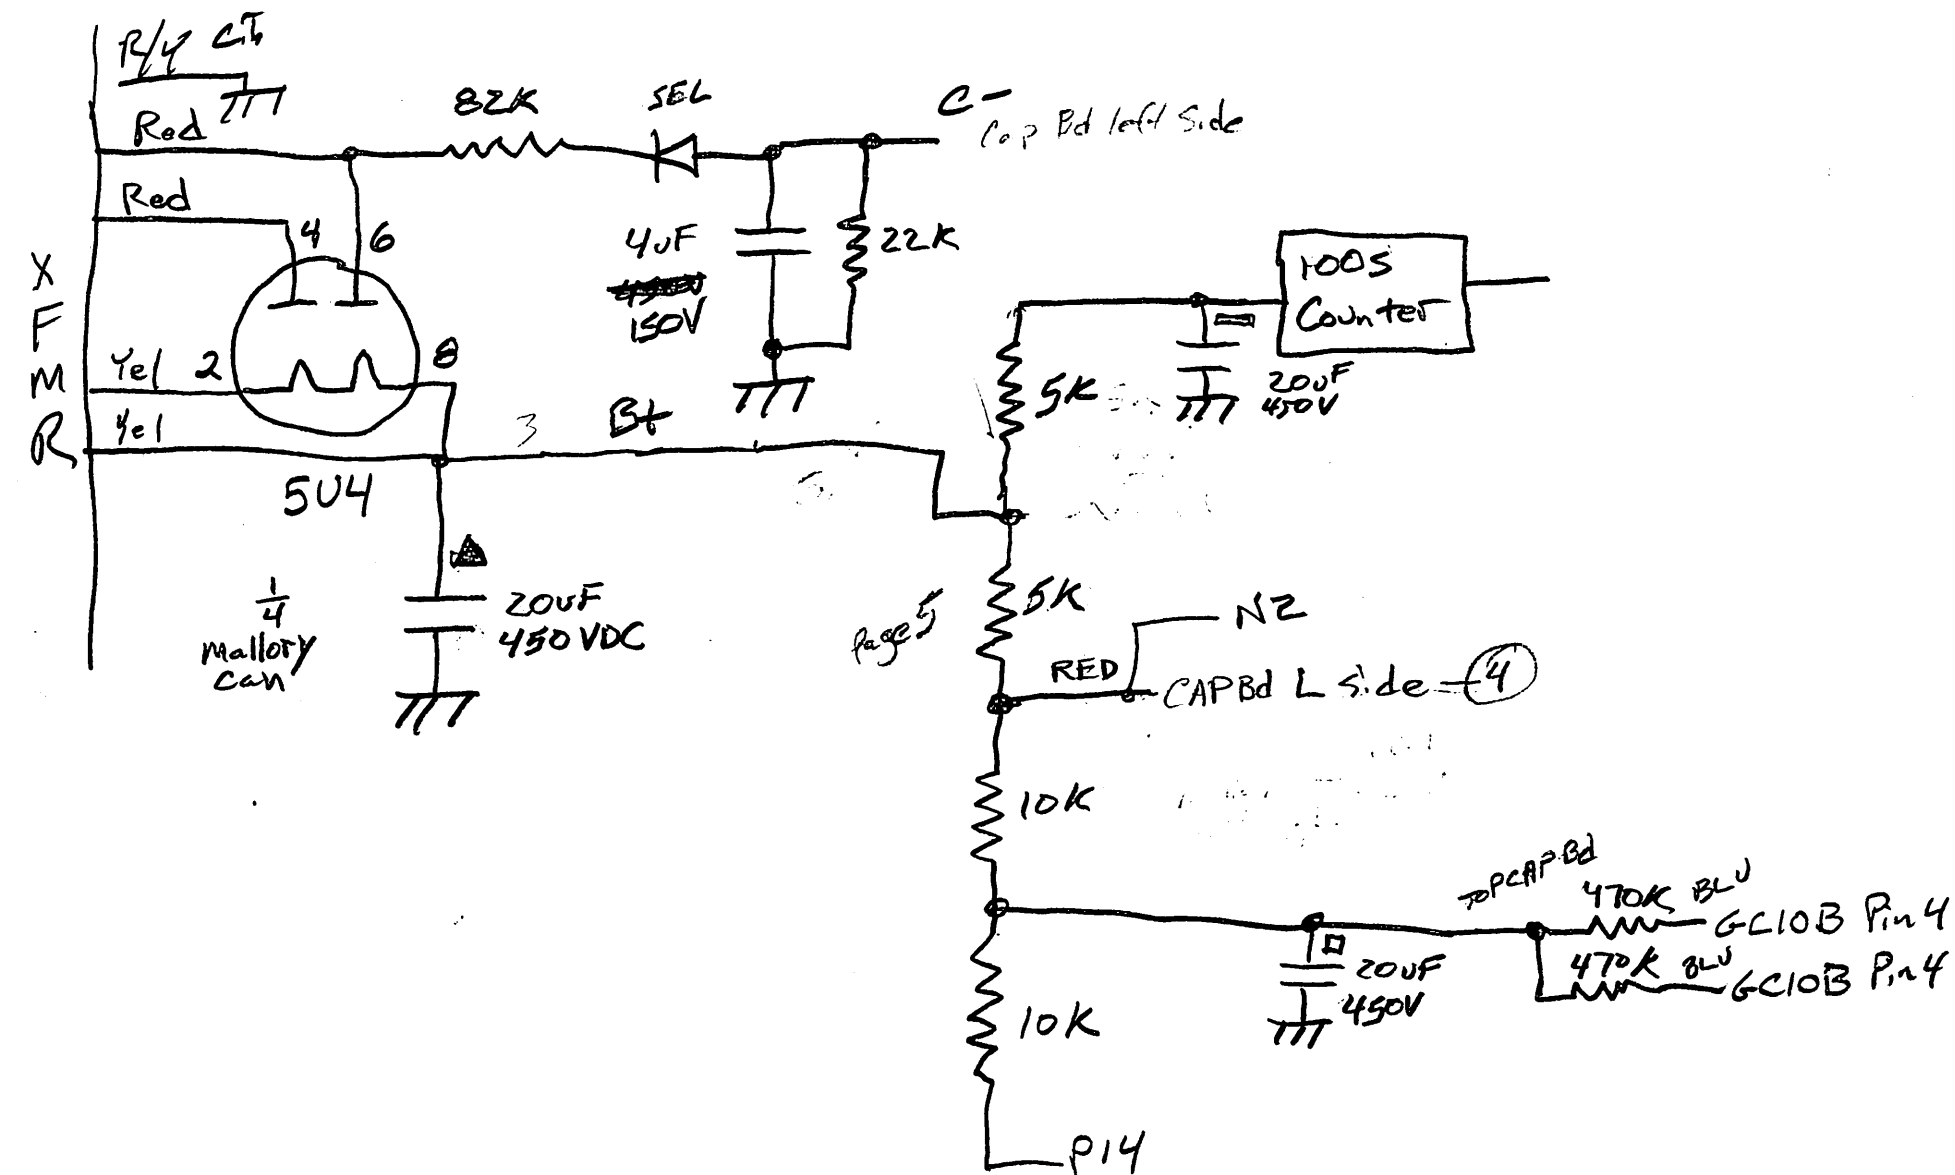 R/Y CT
Red
82K
SEL
C-
Cap Bd left Side
Red
4
6
4uF
150V
22K
100S
Counter
XFMR
Yel
2
8
Yel
3
B+
5K
20uF
450V
5U4
1/4
Mallory
can
20uF
450VDC
Page 5
5K
N2
RED
CAPBd L Side
4
10K
TOPCAPBd
470K BLU
GC10B Pin 4
470K BLU
GC10B Pin 4
20uF
450V
10K
P14